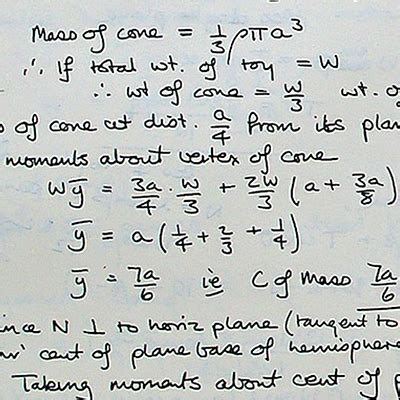 Mass of cone = 1/3 ρπa³
∴ If total wt. of toy = W
∴ wt of cone = W/3 wt. o
of cone at dist. a/4 from its plan
moments about vertex of cone
Wȳ = 3a/4 · W/3 + 2W/3 (a + 3a/8)
ȳ = a(1/4 + 2/3 + 1/4)
ȳ = 7a/6 ie C of Mass 7a/6
ince N ⊥ to horiz plane (tangent to
cent of plane base of hemisphere
Taking moments about cent of p